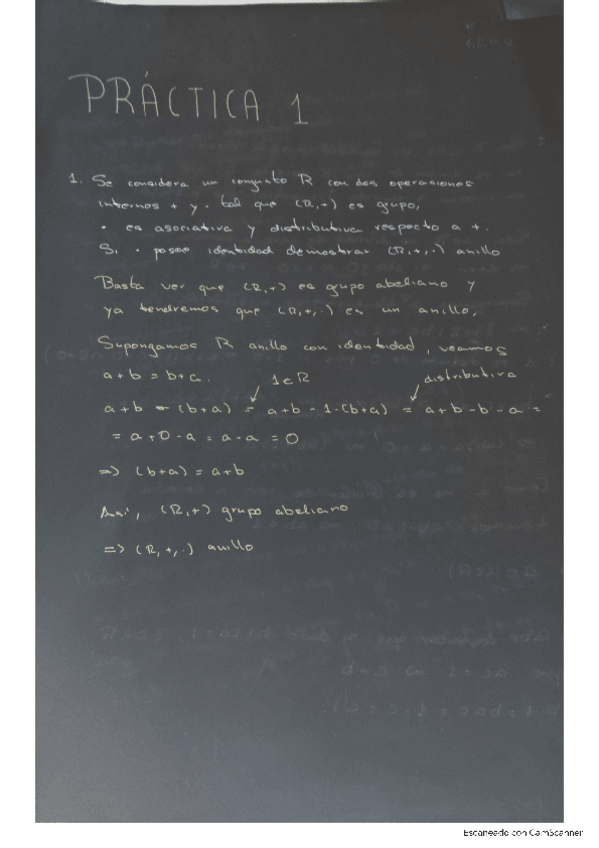 PRÁCTICA 1
1. Se considera un conjunto R con dos operaciones
internas + y · tal que (R,+) es grupo,
· es asociativa y distributiva respecto a +.
Si · posee identidad demostrar (R,+,·) anillo
Basta ver que (R,+) es grupo abeliano y
ya tendremos que (R,+,·) es un anillo.
Supongamos R anillo con identidad, veamos
a+b = b+a.
1∈R
distributiva
a+b - (b+a) = a+b - 1·(b+a) = a+b-b-a =
= a+0-a = a-a = 0
=> (b+a) = a+b
Así, (R,+) grupo abeliano
=> (R,+,·) anillo
Escaneado con CamScanner